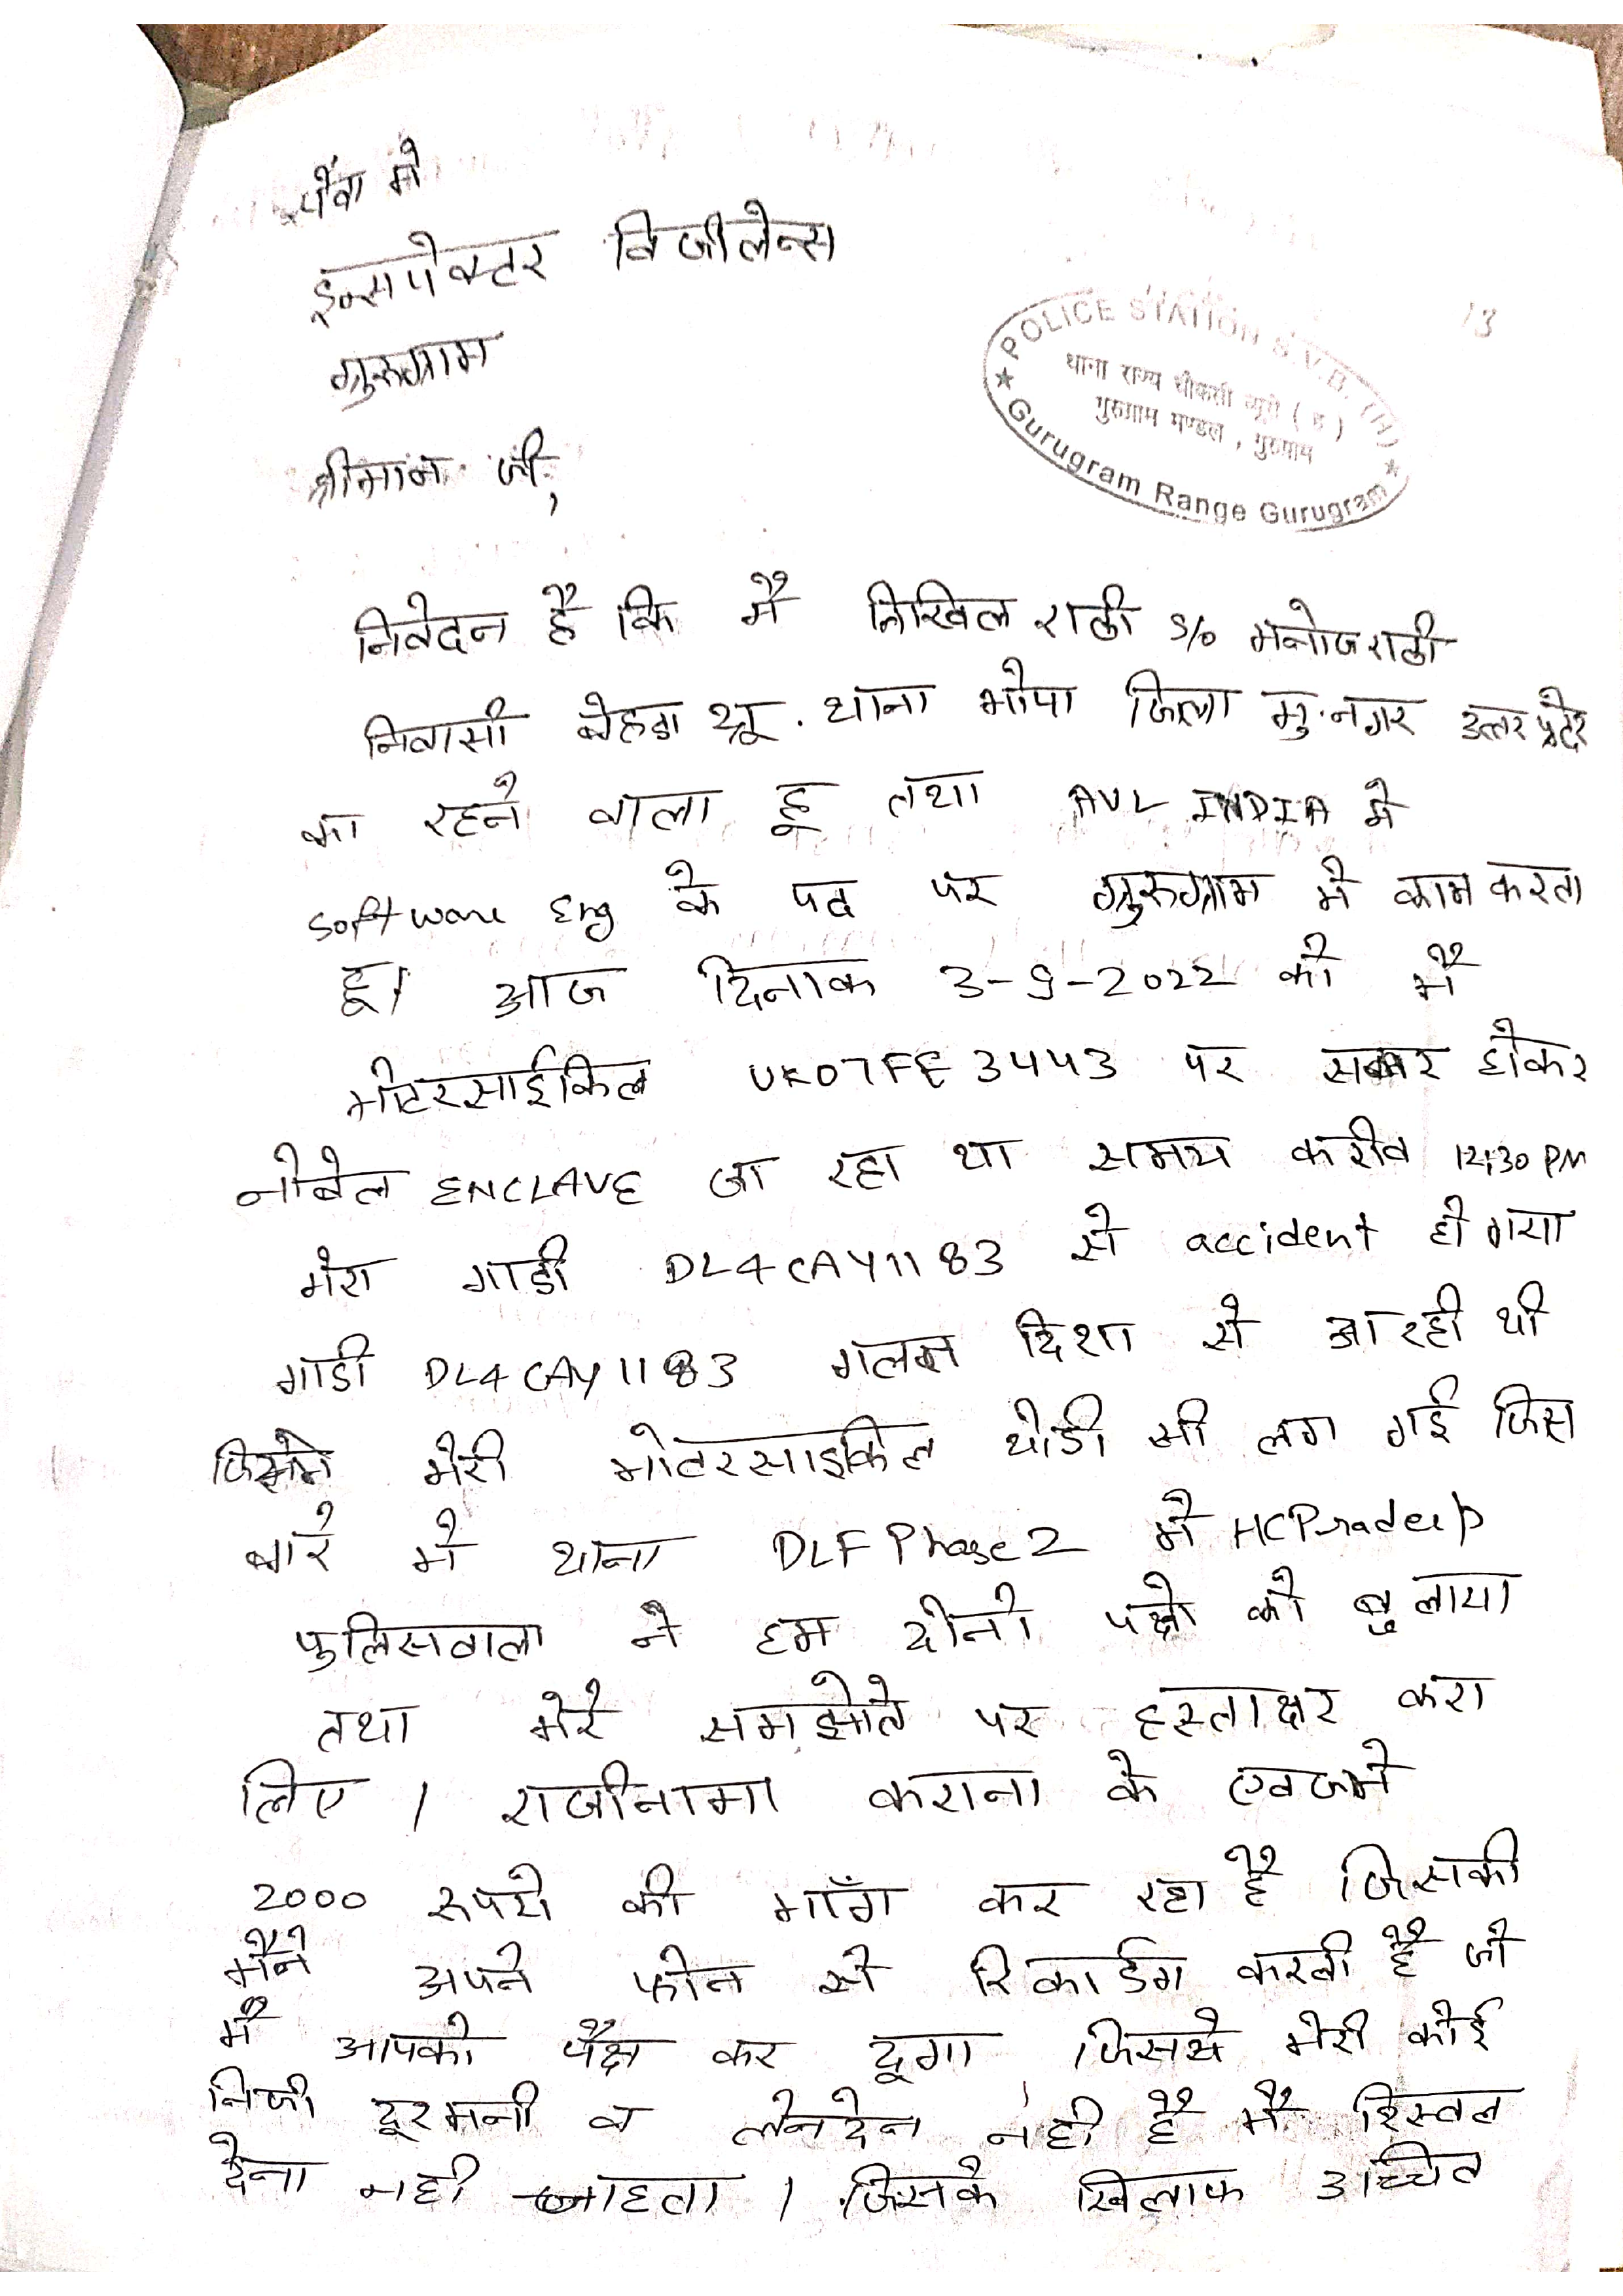 सेवा मे
इन्सपेक्टर विजीलेन्स
गुरुग्राम
श्रीमान जी,
13
POLICE STATION S.V.B. (H)
थाना राज्य चौकसी ब्यूरो ( ह )
गुरुग्राम मण्डल , गुरुग्राम
★ Gurugram Range Gurugram ★
निवेदन है कि मै निखिल राठी S/o मनोज राठी
निवासी बेहडा थ्रू. थाना भोपा जिला मु.नगर उत्तर प्रदेश
का रहने वाला हू तथा AVL INDIA मे
software Eng के पद पर गुरुग्राम मे काम करता
हू। आज दिनाक 3-9-2022 को मै
मोटरसाईकिल UK07FE3443 पर सवार होकर
नोबेल ENCLAVE जा रहा था समय करीब 12:30 PM
मेरा गाडी DL4CAY1183 से accident हो गया
गाडी DL4CAY1183 गलत दिशा से आ रही थी
जिसमे मेरी मोटरसाइकिल थोडी सी लग गई जिस
बारे मे थाना DLF Phase 2 मे HC Pradeep
पुलिसवाला ने हम दोनो पक्षो को बुलाया
तथा मेरे समझोते पर हस्ताक्षर करा
लिए । राजीनामा कराना के एवजमे
2000 रूपये की माँग कर रहा है जिसकी
मैने अपने फोन से रिकार्डग करली है जो
मै आपको पेश कर दूगा जिससे मेरी कोई
निजी दूश्मनी व लेनदेन नही है मै रिस्वत
देना नही चाहता । जिसके खिलाफ उच्चित